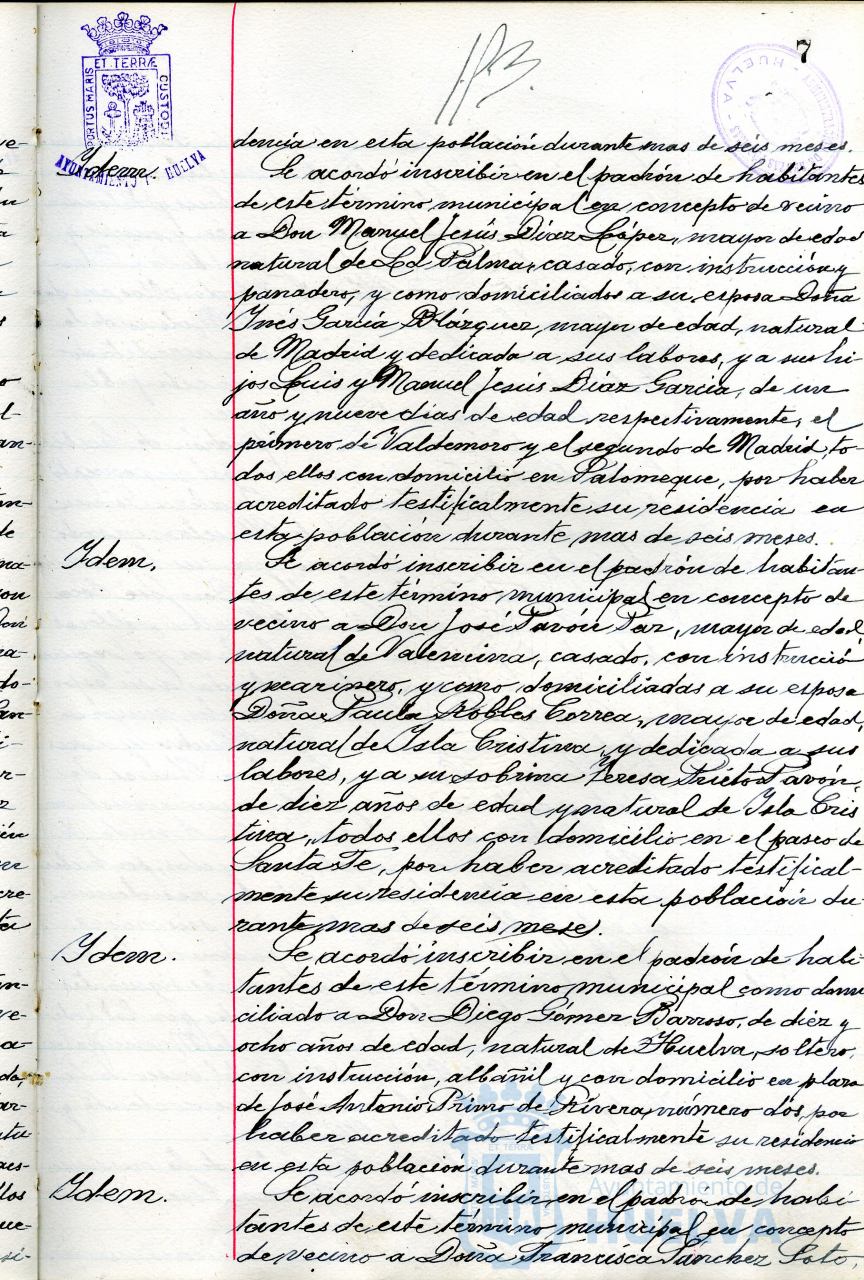 7
ET TERRÆ
PORTUS MARIS
CUSTODI
AYUNTAMIENTO DE HUELVA
HUELVA
dencia en esta población durante mas de seis meses.
Idem. Se acordó inscribir en el padrón de habitantes
de este término municipal en concepto de vecino
a Don Manuel Jesús Díaz López, mayor de edad
natural de La Palma, casado, con instrucción y
panadero, y como domiciliados a su esposa Doña
Inés García Blázquez, mayor de edad, natural
de Madrid y dedicada a sus labores, y a sus hi-
jos Luis y Manuel Jesús Díaz García, de un
año y nueve días de edad respectivamente, el
primero de Valdemoro y el segundo de Madrid, to-
dos ellos con domicilio en Palomeque, por haber
acreditado testificalmente su residencia en
esta población durante mas de seis meses.
Idem. Se acordó inscribir en el padrón de habitan-
tes de este término municipal en concepto de
vecino a Don José Pavón Paz, mayor de edad
natural de Valencina, casado, con instrucción
y marinero, y como domiciliadas a su esposa
Doña Paula Robles Correa, mayor de edad,
natural de Isla Cristina, y dedicada a sus
labores, y a su sobrina Teresa Prieto Pavón,
de diez años de edad y natural de Isla Cris
tina, todos ellos con domicilio en el paseo de
Santa Fe, por haber acreditado testifical-
mente su residencia en esta población du-
rante mas de seis mese.
Idem. Se acordó inscribir en el padrón de habi-
tantes de este término municipal como domi
ciliado a Don Diego Gómez Barroso, de diez y
ocho años de edad, natural de Huelva, soltero,
con instrucción, albañil y con domicilio en plaza
de José Antonio Primo de Rivera, número dos, por
haber acreditado testificalmente su residencia
en esta población durante mas de seis meses.
Idem. Se acordó inscribir en el padrón de habi-
tantes de este término municipal en concepto
de vecino a Doña Francisca Sánchez Soto,
Ayuntamiento de
HUELVA